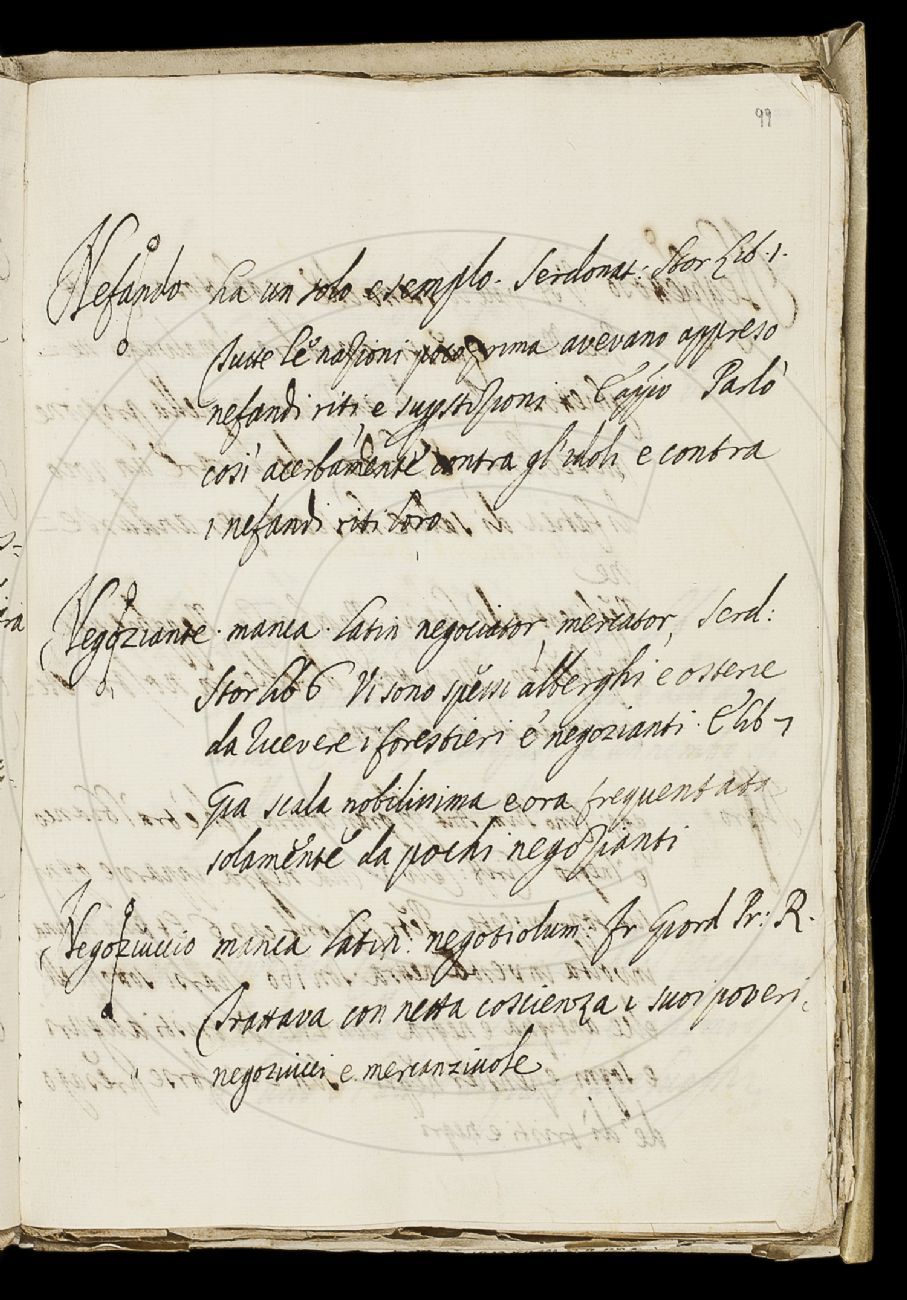 99
Nefando ha un solo esemplo. Serdonat. Stor Lib. 1.
Tutte le nazioni poco prima avevano appreso
nefandi riti, e superstizioni E appio Parlò
così acerbamente contra gl'idoli e contra
i nefandi riti loro
Negoziante. manca. Latin negociator, mercator, Serd:
Stor lib 6 Vi sono spessi alberghi e osterie
da ricevere i forestieri e negozianti. E lib 7
Già scala nobilissima e ora frequentata
solamente da pochi negozianti
Negoziuccio manca Latin: negotiolum: fr Giord Pr: R.
Trattava con netta coscienza i suoi poveri
negoziucci e mercanziuole